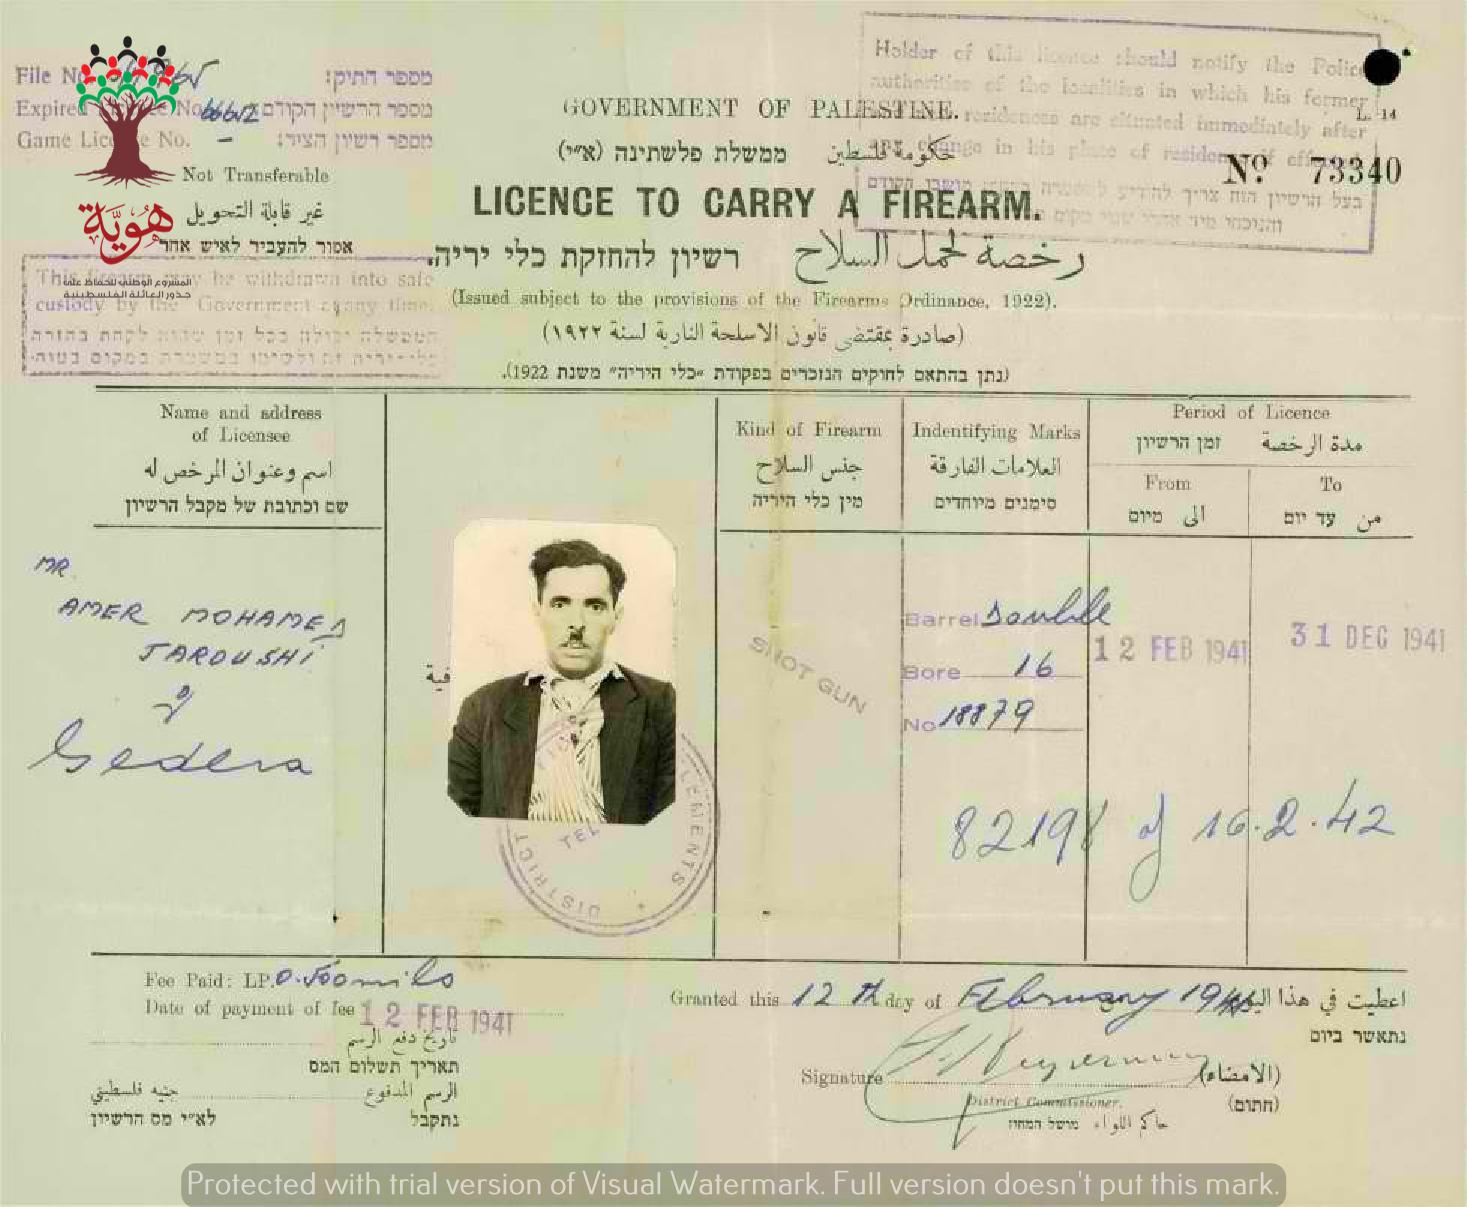 File No.
מספר התיק:
Expired
No. 66612
מספר הרשיון הקודם
Game Licence No. -
מספר רשיון הציד:
Not Transferable
غير قابلة التحويل
אסור להעביר לאיש אחר
هوية
المشروع الوطني للحفاظ على
جذور العائلة الفلسطينية
This firearm may be withdrawn into safe
custody by the Government at any time.
הממשלה יכולה בכל זמן שהוא לקחת בחזרה
GOVERNMENT OF PALESTINE.
ממשלת פלשתינה (א״י)
حكومة فلسطين
LICENCE TO CARRY A FIREARM.
רשיון להחזקת כלי יריה.
رخصة لحمل السلاح
(Issued subject to the provisions of the Firearms Ordinance, 1922).
(صادرة بمقتضى قانون الاسلحة النارية لسنة ١٩٢٢)
(נתן בהתאם לחוקים הנזכרים בפקודת ״כלי היריה״ משנת 1922).
Holder of this licence should notify the Police
authorities of the localities in which his former
residences are situated immediately after
any change in his place of residence if effected
בעל הרשיון הזה צריך להודיע
L. 14
No. 73340
Name and address
of Licensee
اسم وعنوان المرخص له
שם וכתובת של מקבל הרשיון
Kind of Firearm
جنس السلاح
מין כלי היריה
Indentifying Marks
العلامات الفارقة
סימנים מיוחדים
Period of Licence
זמן הרשיון
مدة الرخصة
From
الى
מיום
To
من
עד יום
MR.
AMER MOHAMED
JAROUSHI
of
Gedera
فية
SHOT GUN
Barrel Double
Bore 16
No 18879
12 FEB 1941
31 DEC 1941
82198 of 16.2.42
DISTRICT
TEL
Fee Paid: LP. 0.500 mils
Date of payment of fee 12 FEB 1941
تاريخ دفع الرسم
תאריך תשלום המס
جنيه فلسطيني
الرسم المدفوع
לא״י מס הרשיון
נתקבל
Granted this 12 th day of February 1941
اعطيت في هذا اليوم
נתאשר ביום
Signature
(الامضاء)
(חתום)
District Commissioner.
מושל המחוז
حاكم اللواء
Protected with trial version of Visual Watermark. Full version doesn't put this mark.